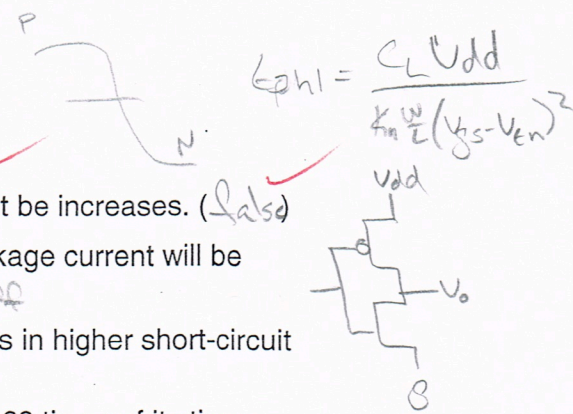 P
tphl = CL Vdd
Kn W/L (Vgs-Vtn)²
N
Vdd
t be increases. (false)
kage current will be
Vo
s in higher short-circuit